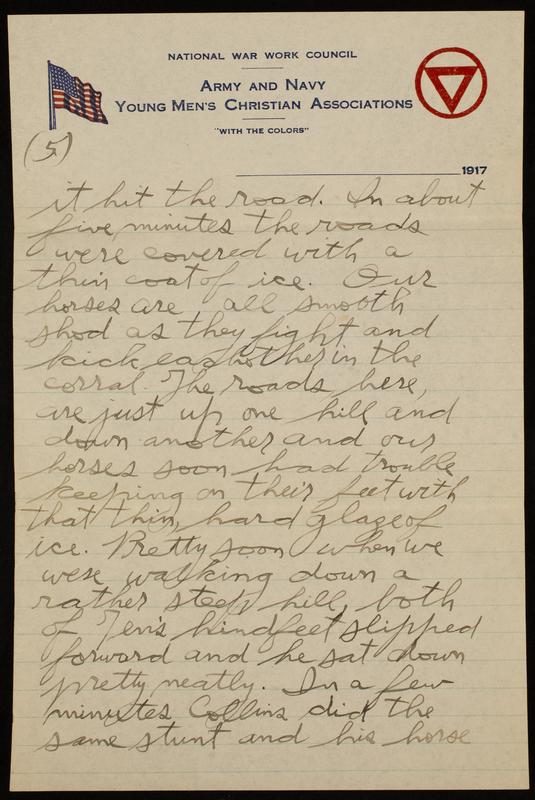 NATIONAL WAR WORK COUNCIL
ARMY AND NAVY
YOUNG MEN'S CHRISTIAN ASSOCIATIONS
"WITH THE COLORS"
(5)
1917
it hit the road. In about
five minutes the roads
were covered with a
thin coat of ice. Our
horses are all smooth
shod as they fight and
kick each other in the
corral. The roads here,
are just up one hill and
down another, and our
horses soon had trouble
keeping on their feet with
that thin, hard glaze of
ice. Pretty soon when we
were walking down a
rather steep hill, both
of hind feet slipped
forward and he sat down
pretty neatly. In a few
minutes Collins did the
same stunt and his horse